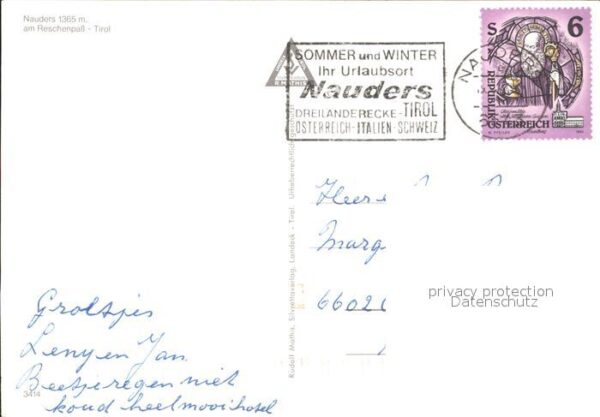 Nauders 1365 m.
am Reschenpaß - Tirol
SOMMER und WINTER
Ihr Urlaubsort
Nauders
DREILÄNDERECKE - TIROL
ÖSTERREICH - ITALIEN - SCHWEIZ
R. MATHIS
S 6
REPUBLIK
ÖSTERREICH
Heer
Marg
6602
privacy protection
Datenschutz
Rudolf Mathis, Silvrettaverlag, Landeck - Tirol. Urheberrechtlich geschützt
Groetjes
Leny en Jan
Beetje regen niet
koud heel mooi hotel
3414